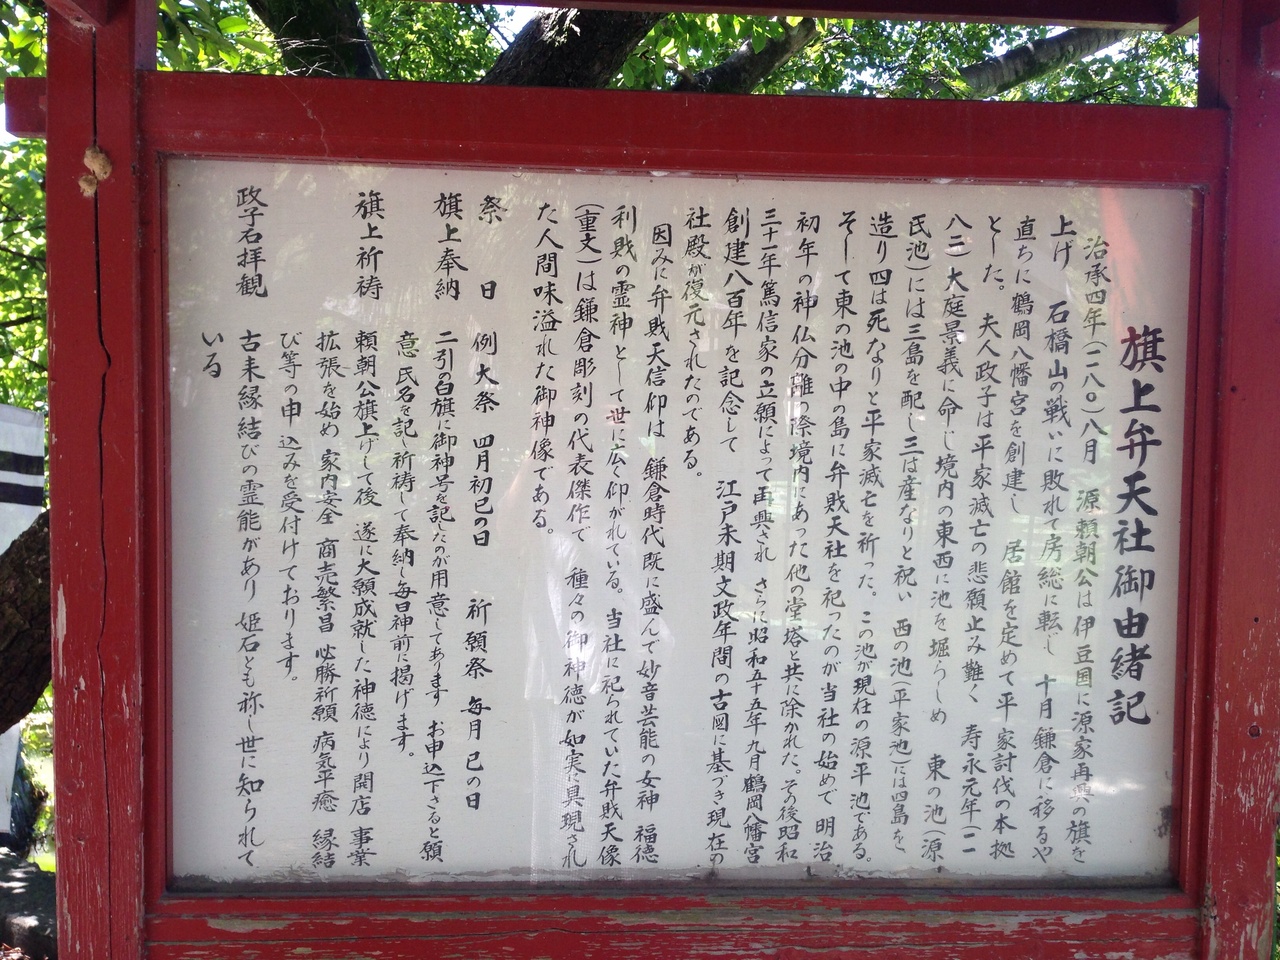 旗上弁天社御由緒記
治承四年(一一八〇)八月　源頼朝公は伊豆国に源家再興の旗を
上げ　石橋山の戦いに敗れて房総に転じ　十月鎌倉に移るや
直ちに鶴岡八幡宮を創建し　居館を定めて平家討伐の本拠
とした。夫人政子は平家滅亡の悲願止み難く　寿永元年(一一
八二)大庭景義に命じ境内の東西に池を堀らしめ　東の池(源
氏池)には三島を配し三は産なりと祝い　西の池(平家池)には四島を
造り四は死なりと平家滅亡を祈った。この池が現在の源平池である。
そして東の池の中の島に弁財天社を祀ったのが当社の始めで　明治
初年の神仏分離の際境内にあった他の堂塔と共に除かれた。その後昭和
三十一年篤信家の立願によって再興され　さらに昭和五十五年九月鶴岡八幡宮
創建八百年を記念して　江戸末期文政年間の古図に基づき現在の
社殿が復元されたのである。
因みに弁財天信仰は　鎌倉時代既に盛んで妙音芸能の女神　福徳
利財の霊神として世に広く仰がれている。当社に祀られていた弁財天像
(重文)は鎌倉彫刻の代表傑作で　種々の御神徳が如実に具現され
た人間味溢れた御神像である。
祭日　例大祭　四月初巳の日　祈願祭　毎月　巳の日
旗上奉納　二引の白旗に御神号を記したのが用意してあります　お申込下さると願
意　氏名を記し祈祷して奉納し毎日神前に掲げます。
旗上祈祷　頼朝公旗上げして後　遂に大願成就した神徳により開店　事業
拡張を始め　家内安全　商売繁昌　必勝祈願　病気平癒　縁結
び等の申込みを受付けております。
政子石拝観　古来縁結びの霊能があり　姫石とも称し世に知られて
いる